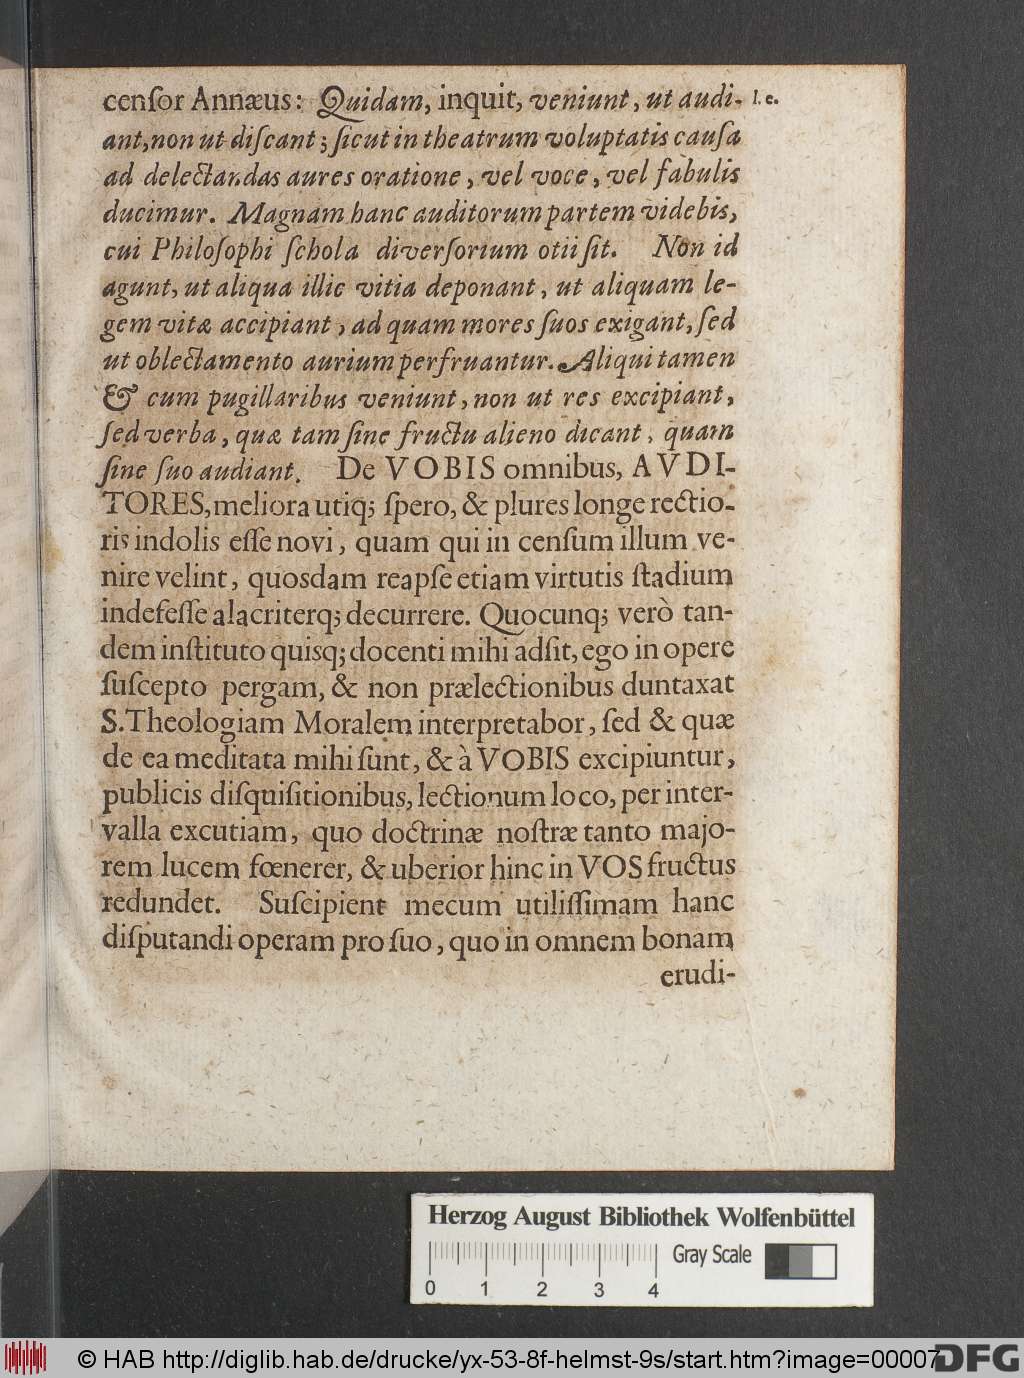 cenſor Annæus: Quidam, inquit, veniunt, ut audi- l. c.
ant, non ut diſcant; ſicut in theatrum voluptatis cauſa
ad delectandas aures oratione, vel voce, vel fabulis
ducimur. Magnam hanc auditorum partem videbis,
cui Philoſophi ſchola diverſorium otii ſit. Non id
agunt, ut aliqua illic vitia deponant, ut aliquam le-
gem vitæ accipiant, ad quam mores ſuos exigant, ſed
ut oblectamento aurium perfruantur. Aliqui tamen
& cum pugillaribus veniunt, non ut res excipiant,
ſed verba, quæ tam ſine fructu alieno dicant, quam
ſine ſuo audiant. De VOBIS omnibus, AVDI-
TORES, meliora utiq; ſpero, & plures longe rectio-
ris indolis eſſe novi, quam qui in cenſum illum ve-
nire velint, quosdam reapſe etiam virtutis ſtadium
indefeſſe alacriterq; decurrere. Quocunq; verò tan-
dem inſtituto quisq; docenti mihi adſit, ego in opere
ſuſcepto pergam, & non prælectionibus duntaxat
S. Theologiam Moralem interpretabor, ſed & quæ
de ea meditata mihi ſunt, & à VOBIS excipiuntur,
publicis diſquiſitionibus, lectionum loco, per inter-
valla excutiam, quo doctrinæ noſtræ tanto majo-
rem lucem fœnerer, & uberior hinc in VOS fructus
redundet. Suſcipient mecum utiliſſimam hanc
diſputandi operam pro ſuo, quo in omnem bonam
erudi-
Herzog August Bibliothek Wolfenbüttel
Gray Scale
0 1 2 3 4
© HAB http://diglib.hab.de/drucke/yx-53-8f-helmst-9s/start.htm?image=00007
DFG